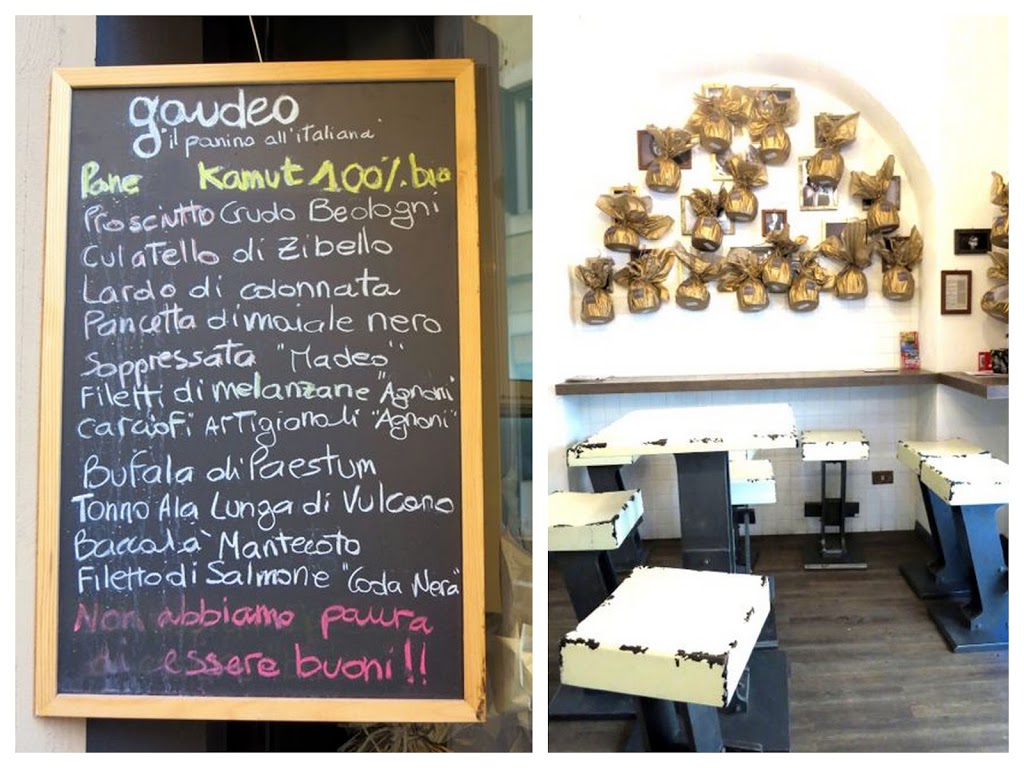 gaudeo
"il panino all'italiana"
Pane Kamut 100%.bio
Prosciutto Crudo Beologni
Culatello di Zibello
Lardo di colonnata
Pancetta di maiale nero
Soppressata "Madeo"
Filetti di melanzane "Agnoni"
carciofi ArTigionali "Agnoni"
Bufala di Paestum
Tonno Ala Lunga di Vulcano
Baccala' Mantecato
Filetto di Salmone "Coda Nera"
Non abbiamo paura
di essere buoni!!